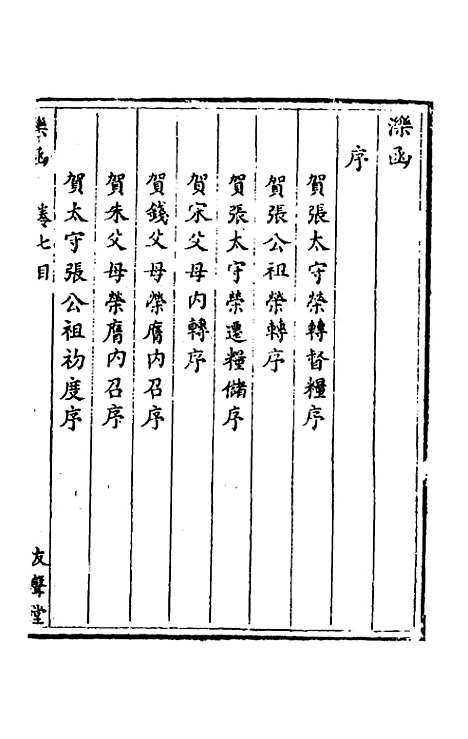 濼函
序
賀張太守榮轉督糧序
賀張公祖榮轉序
賀張太守榮遷糧儲序
賀宋父母内轉序
賀錢父母榮膺内召序
賀朱父母榮膺内召序
賀太守張公祖初度序
濼函 卷七目 友聲堂